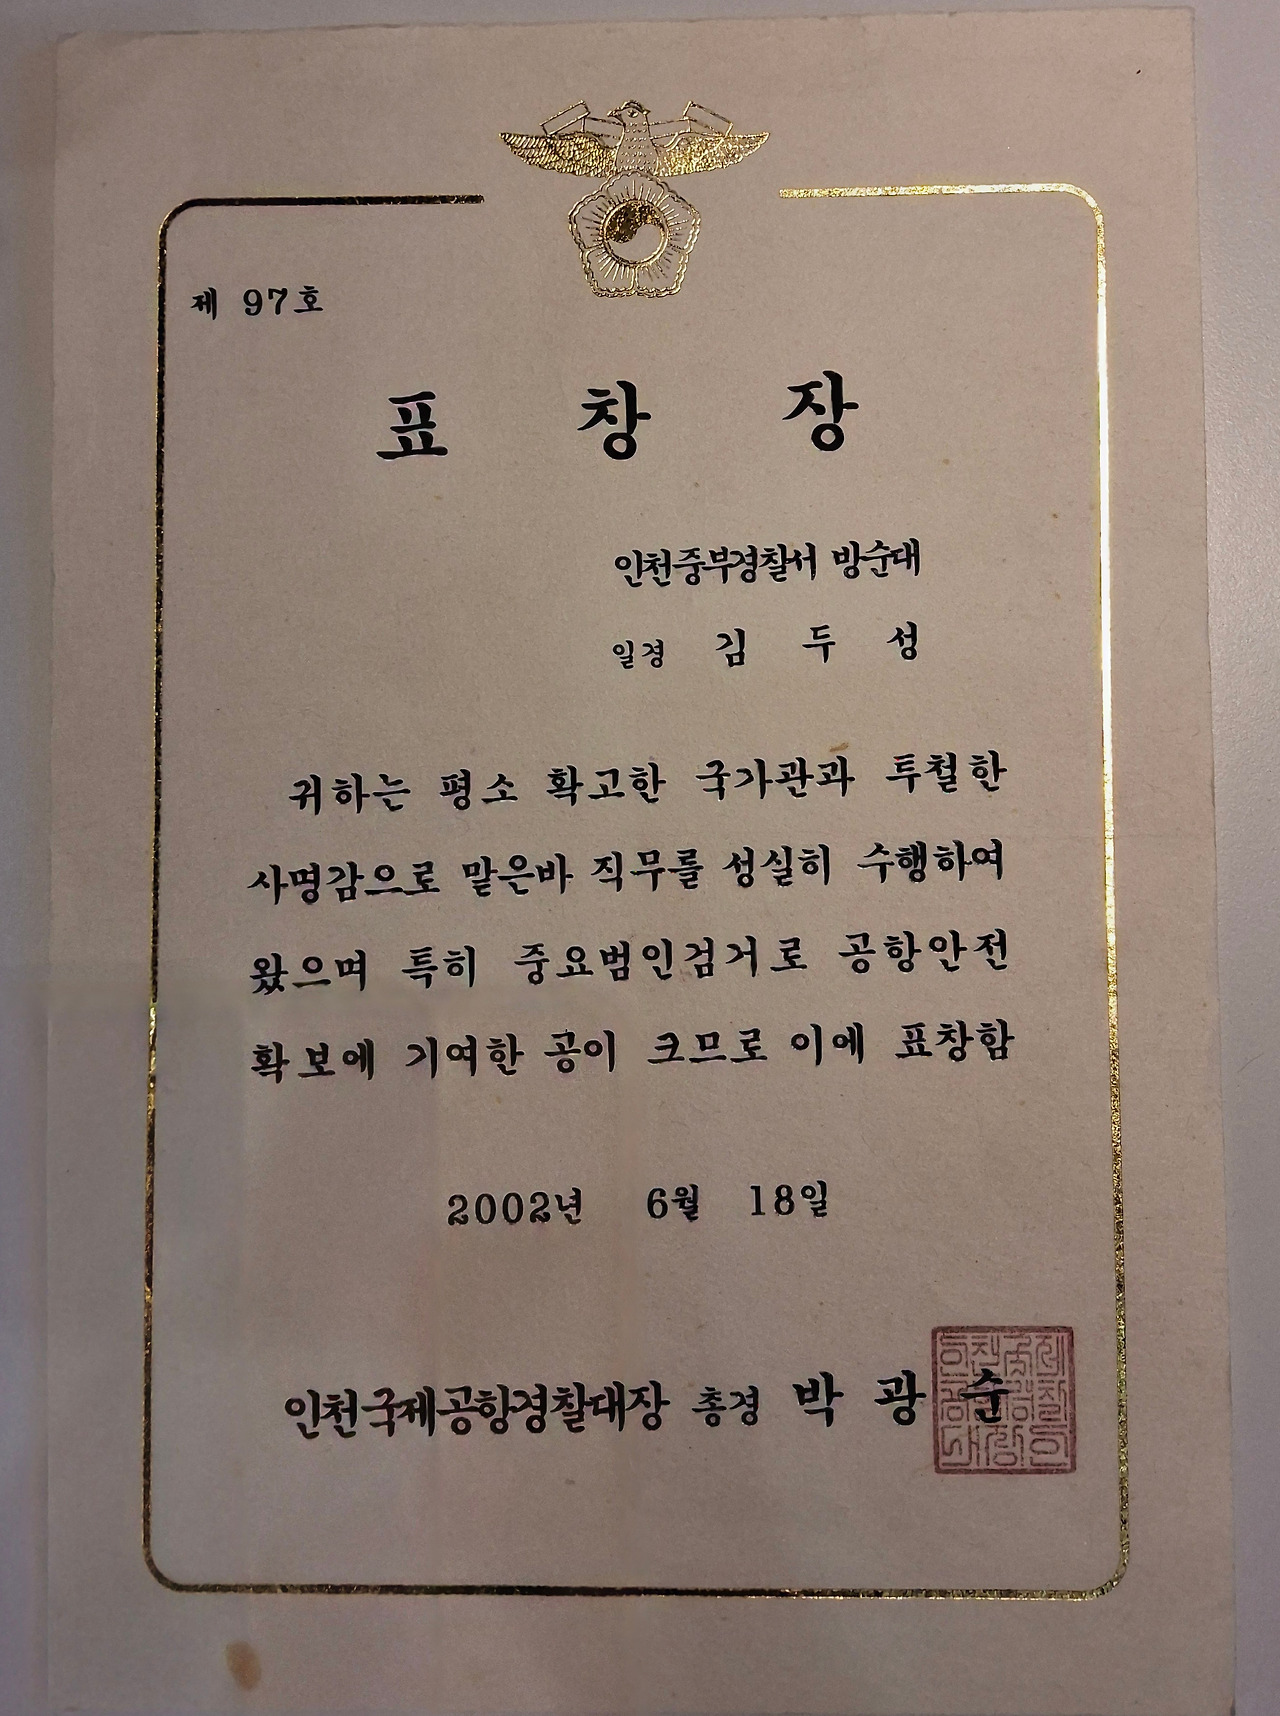 제 97호
표 창 장
인천중부경찰서 방순대
일경 김 두 성
귀하는 평소 확고한 국가관과 투철한
사명감으로 맡은바 직무를 성실히 수행하여
왔으며 특히 중요범인검거로 공항안전
확보에 기여한 공이 크므로 이에 표창함
2002년 6월 18일
인천국제공항경찰대장 총경 박 광 순